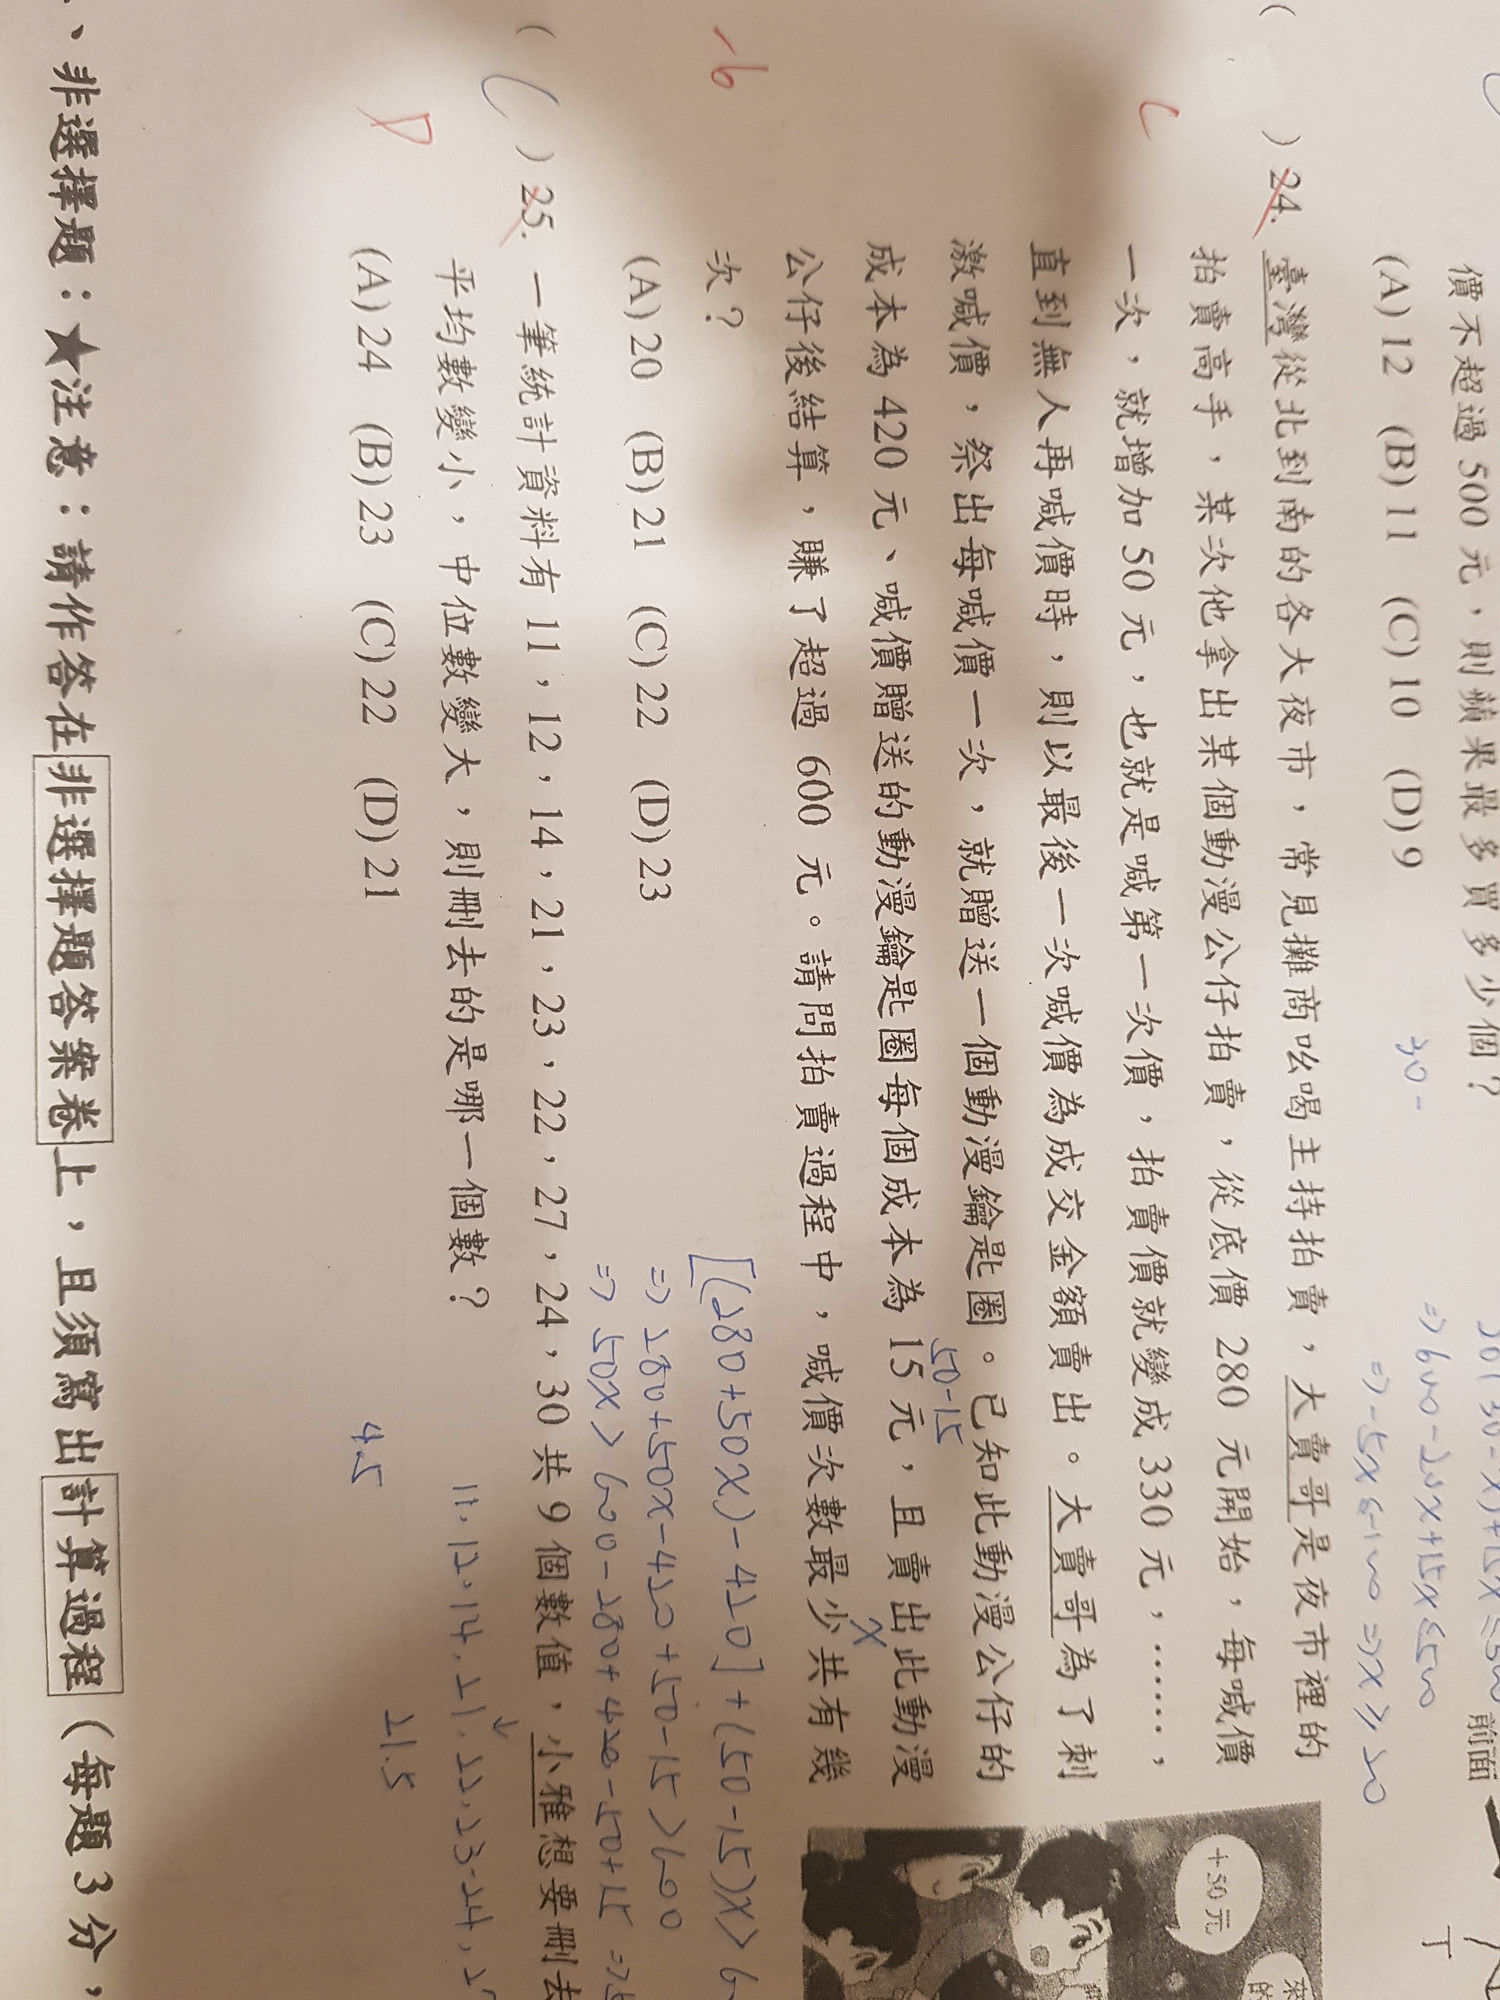 價不超過 500 元，則蘋果最多買多少個？
(A) 12 (B) 11 (C) 10 (D) 9
30-
⇒ 600-20x+15x≤500
⇒ -5x≤-100 ⇒ x≥20
前面
C
( ) 24. 臺灣從北到南的各大夜市，常見攤商吆喝主持拍賣，大賣哥是夜市裡的
拍賣高手，某次他拿出某個動漫公仔拍賣，從底價 280 元開始，每喊價
一次，就增加 50 元，也就是喊第一次價，拍賣價就變成 330 元，……，
直到無人再喊價時，則以最後一次喊價為成交金額賣出。大賣哥為了刺
激喊價，祭出每喊價一次，就贈送一個動漫鑰匙圈。已知此動漫公仔的
50-15
成本為 420 元、喊價贈送的動漫鑰匙圈每個成本為 15 元，且賣出此動漫
x
公仔後結算，賺了超過 600 元。請問拍賣過程中，喊價次數最少共有幾
次？
+50 元
-6
(A) 20 (B) 21 (C) 22 (D) 23
[(280+50x)-420]+(50-15)x>6
⇒ 280+50x-420+50-15>600
⇒ 50x>600-280+420-50+15
D
( ) 25. 一筆統計資料有 11，12，14，21，23，22，27，24，30 共 9 個數值，小雅想要刪去
平均數變小，中位數變大，則刪去的是哪一個數？
11.12.14.21.22.23.24.2
(A) 24 (B) 23 (C) 22 (D) 21
4.5
21.5
、非選擇題：★注意：請作答在非選擇題答案卷上，且須寫出計算過程（每題 3 分，